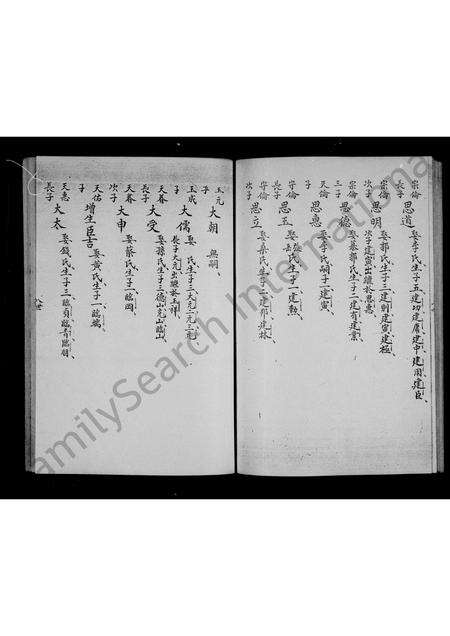 宗倫 長子 思道 娶李氏生子五建功建庸建中建周建臣
宗倫 次子 思明 娶郭氏生子三建則建寅建極
次子建寅出繼於思惠
宗倫 三子 思德 娶蔡郭氏生子二建有建業
天倫 子 思惠 娶李氏嗣子一建寅
守倫 長子 思五 氏生子一建勳
守倫 次子 思立 娶真氏生子二建邦建林
玉元 子 大朝 無嗣
玉成 子 大儒 娶 氏生子三大元二元三元
長子大元出繼於玉祥
天春 長子 大受 娶孫氏生子三德山克山臨山
天春 次子 大申 娶蔡氏生子一臨岡
天佑 子 增生臣吉 娶黃氏生子一臨城
天惠 長子 大本 娶錢氏生子三臨貞臨青臨朋
FamilySearch International